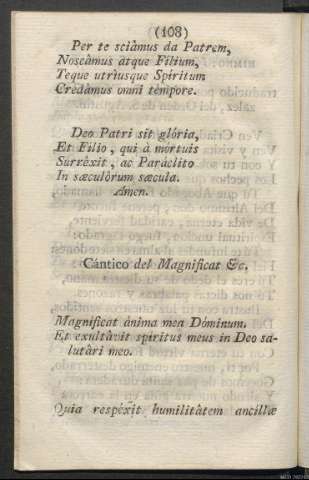 (108)
Per te sciàmus da Patrem,
Noscàmus àtque Filium,
Teque utriusque Spiritum
Credàmus omni témpore.
Deo Patri sit glória,
Et Filio, qui à mórtuis
Surréxit, ac Paráclito
In sæculórum sæcula.
Amen.
Cántico del Magnificat &c.
Magnificat ànima mea Dóminum.
Et exultàvit spiritus meus in Deo sa-
lutàri meo.
Quia respéxit humilitàtem ancillæ